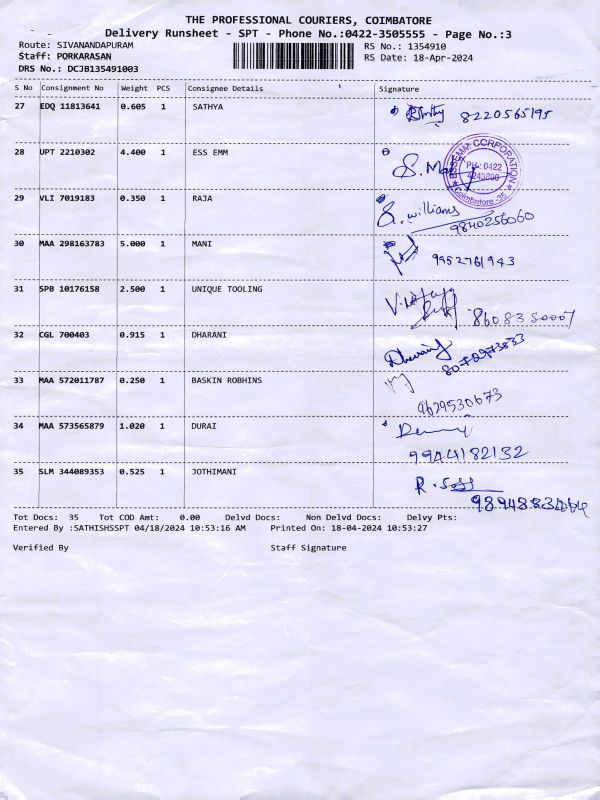 THE PROFESSIONAL COURIERS, COIMBATORE
Delivery Runsheet - SPT - Phone No.:0422-3505555 - Page No.:3
Route: SIVANANDAPURAM
RS No.: 1354910
Staff: PORKARASAN
RS Date: 18-Apr-2024
DRS No.: DCJB135491003
S No Consignment No Weight PCS Consignee Details Signature
27 EDQ 11813641 0.605 1 SATHYA 8220565195
28 UPT 2210302 4.400 1 ESS EMM
ESSEMM CORPORATION
PH : 0422
4243800
Coimbatore -35
29 VLI 7019183 0.350 1 RAJA
S. williams
9840256060
30 MAA 298163783 5.000 1 MANI
9952761943
31 SPB 10176158 2.500 1 UNIQUE TOOLING
8608350007
32 CGL 700403 0.915 1 DHARANI
33 MAA 572011787 0.250 1 BASKIN ROBHINS
9629530673
34 MAA 573565879 1.020 1 DURAI
9944182132
35 SLM 344089353 0.525 1 JOTHIMANI
Tot Docs: 35 Tot COD Amt: 0.00 Delvd Docs: Non Delvd Docs: Delvy Pts:
Entered By :SATHISHSSPT 04/18/2024 10:53:16 AM Printed On: 18-04-2024 10:53:27
Verified By Staff Signature